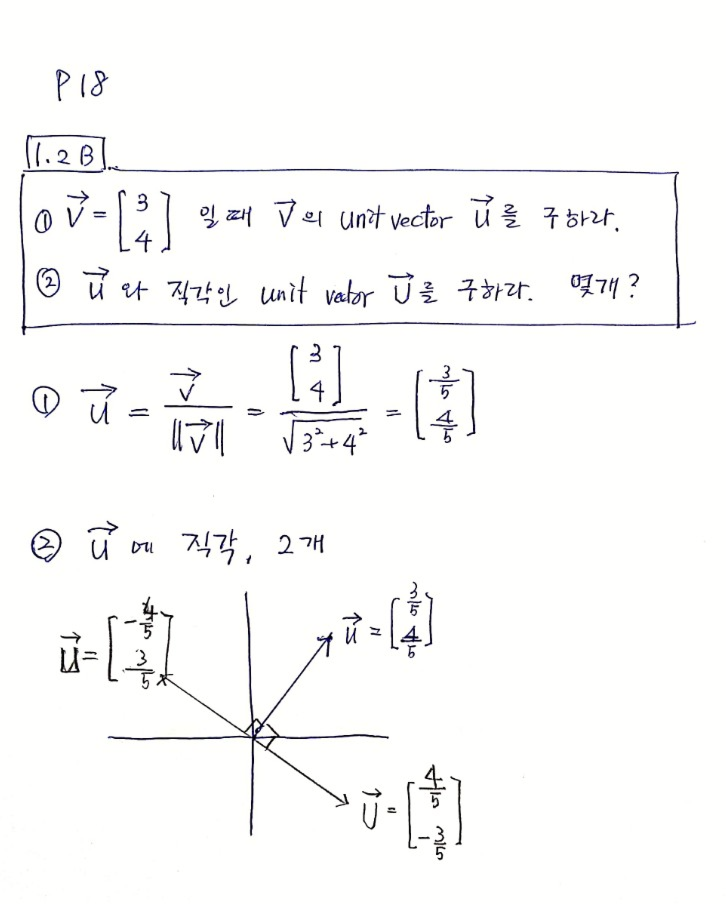 P 18
1.2 B
① v⃗ = [3 4] 일때 v⃗의 unit vector u⃗를 구하라.
② u⃗와 직각인 unit vector U⃗를 구하라. 몇개?
① u⃗ = v⃗ / ||v⃗|| = [3 4] / √(3²+4²) = [3/5 4/5]
② u⃗에 직각, 2개
U⃗ = [-4/5 3/5]
u⃗ = [3/5 4/5]
U⃗ = [4/5 -3/5]